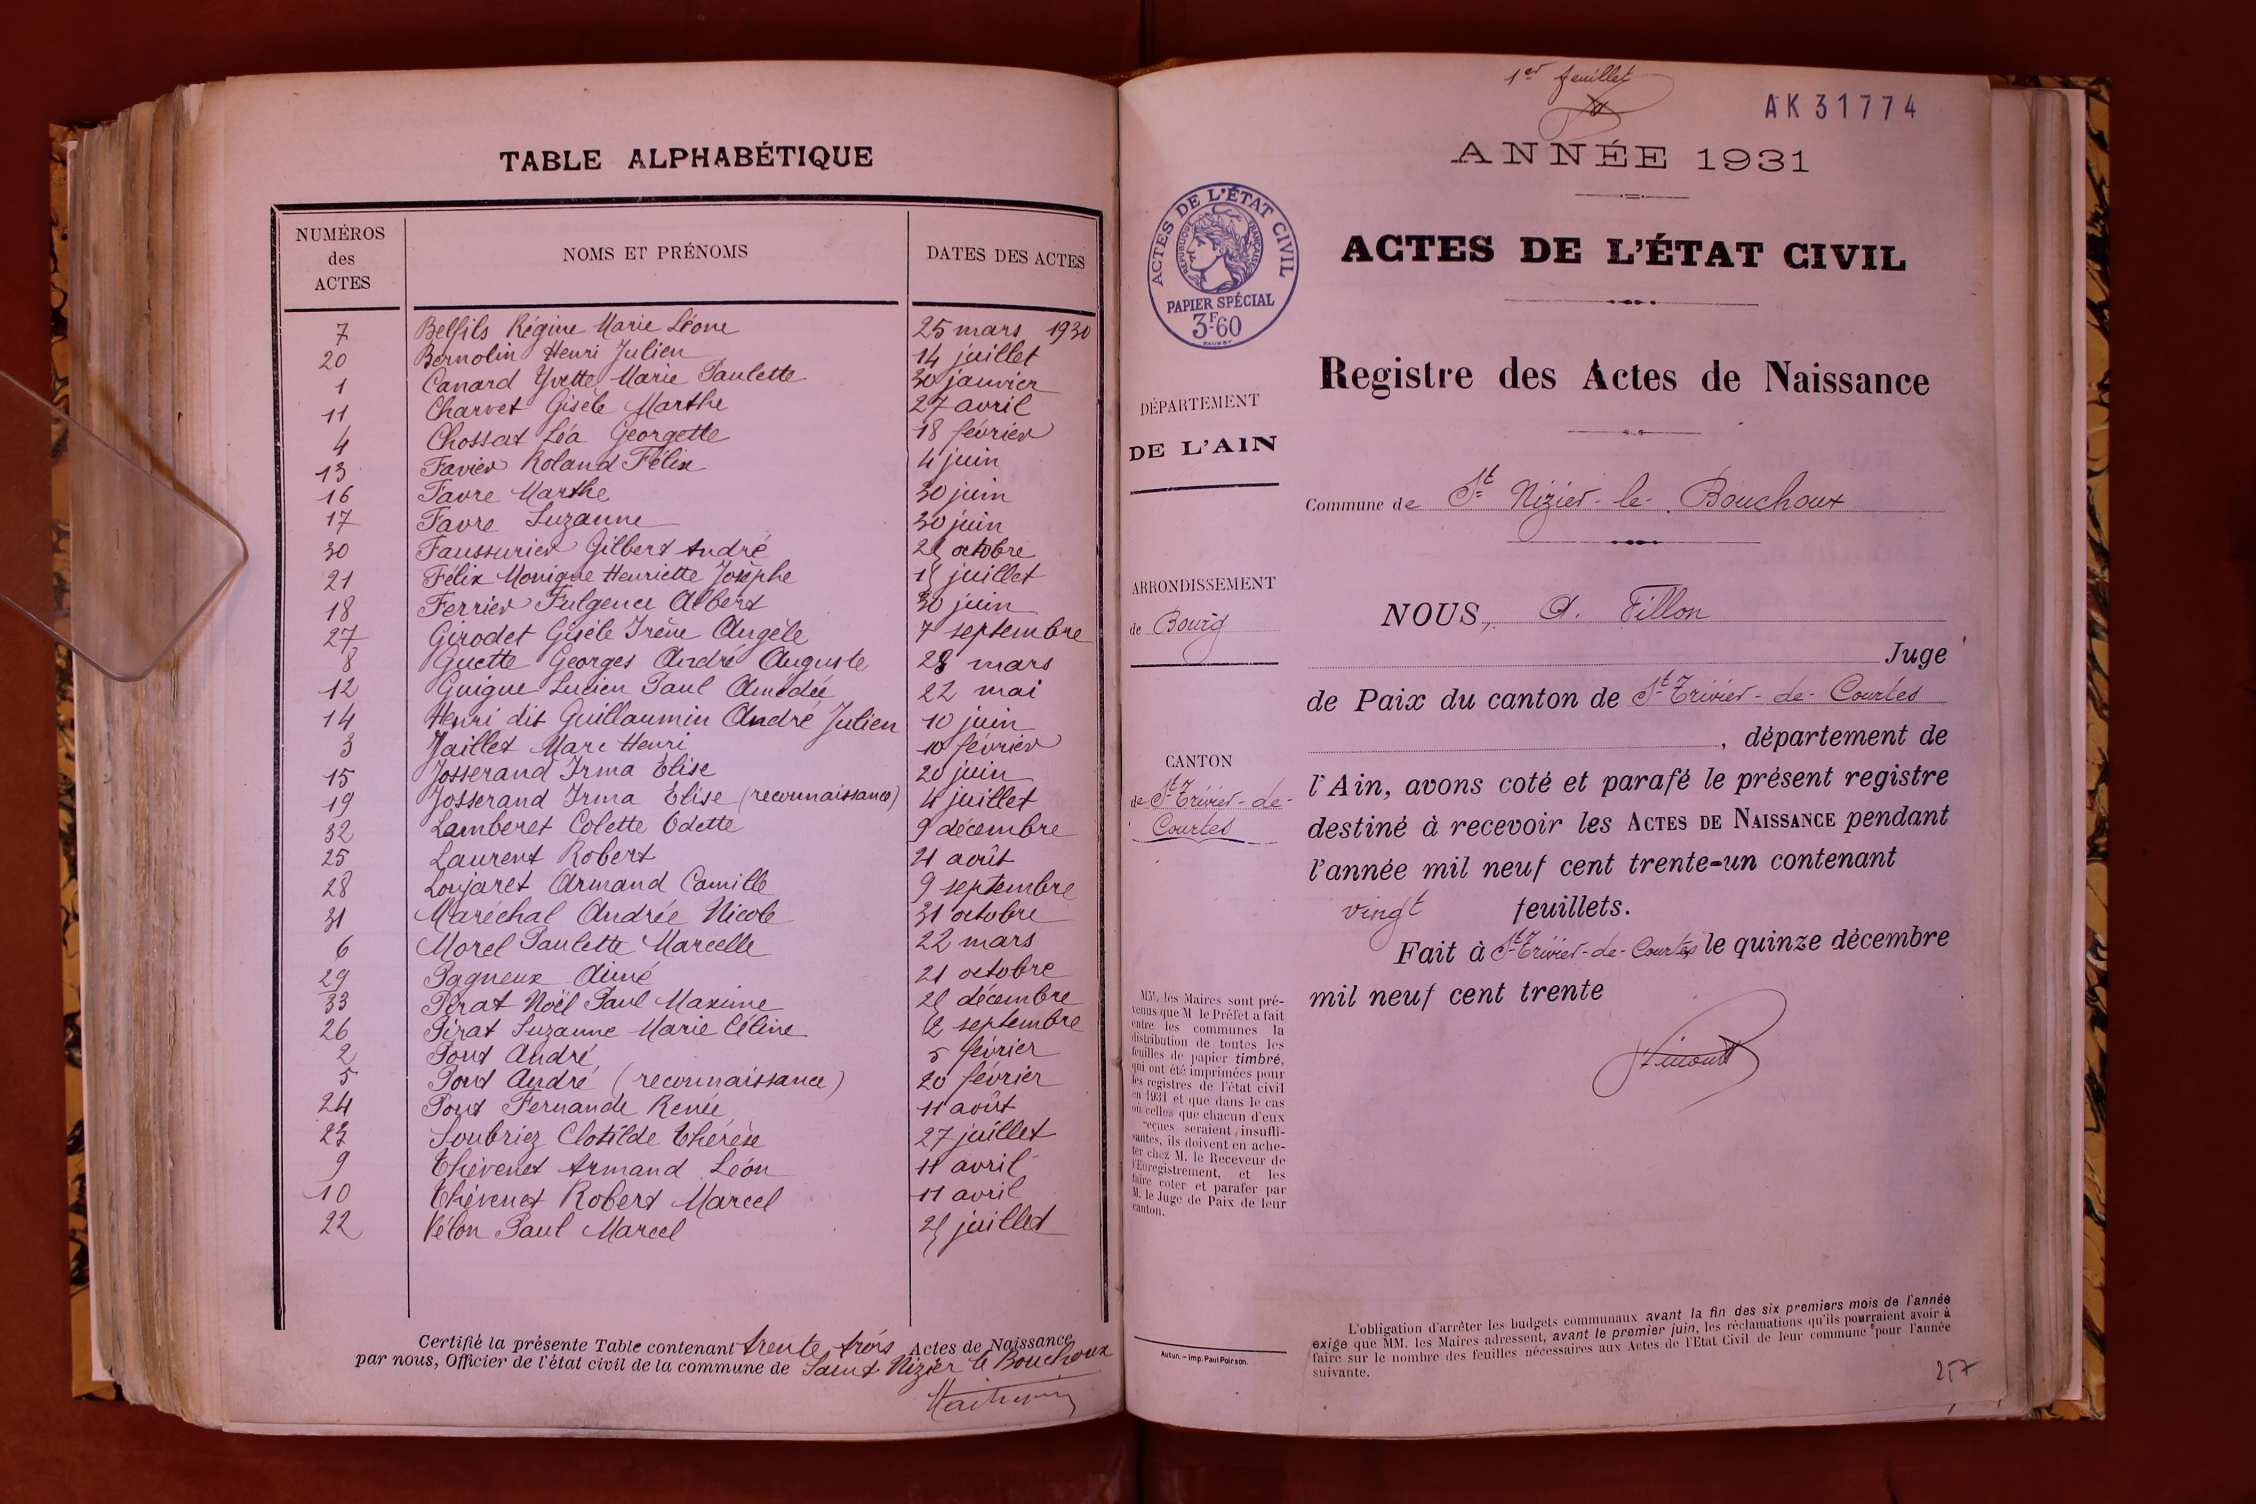 TABLE ALPHABÉTIQUE
NUMÉROS des ACTES NOMS ET PRÉNOMS DATES DES ACTES
7 Belfils Régine Marie Léone 25 mars 1930
20 Bernolin Henri Julien 14 juillet
1 Canard Yvette Marie Paulette 30 janvier
11 Charvet Gisèle Marthe 27 avril
4 Chossat Léa Georgette 18 février
13 Favier Roland Félix 4 juin
16 Favre Marthe 30 juin
17 Favre Suzanne 30 juin
30 Faussurier Gilbert André octobre
21 Félix Monique Henriette Josèphe juillet
18 Ferrier Fulgence Albert 30 juin
27 Girodet Gisèle Irène Angèle 7 septembre
8 Guette Georges André Auguste 28 mars
12 Guigue Lucien Paul Amédée 22 mai
14 Henri dit Guillaumin André Julien 10 juin
3 Jaillet Marc Henri 10 février
15 Josserand Irma Elise 20 juin
19 Josserand Irma Elise (reconnaissance) 4 juillet
32 Lamberet Colette Odette 9 décembre
25 Laurent Robert 21 août
28 Loujaret Armand Camille 9 septembre
31 Maréchal Andrée Nicole 31 octobre
6 Morel Paulette Marcelle 22 mars
29 Pagneux Aimé 21 octobre
33 Pirat Noël Paul Maxime décembre
26 Pirat Suzanne Marie Céline 2 septembre
2 Pont André 5 février
5 Pont André (reconnaissance) 20 février
24 Pont Fernande Renée 11 août
23 Soubriez Clotilde Thérèse 27 juillet
9 Thévenet Armand Léon 11 avril
10 Thévenet Robert Marcel 11 avril
22 Vélon Paul Marcel juillet
Certifié la présente Table contenant trente trois Actes de Naissance
par nous, Officier de l'état civil de la commune de Saint Nizier le Bouchoux
1er feuillet
AK 31774
ANNÉE 1931
ACTES DE L'ÉTAT CIVIL
RÉPUBLIQUE FRANÇAISE
PAPIER SPÉCIAL
3F60
ACTES DE L'ÉTAT CIVIL
Registre des Actes de Naissance
DÉPARTEMENT
DE L'AIN
Commune de St Nizier-le-Bouchoux
ARRONDISSEMENT
de Bourg
CANTON
de St Trivier-de-
Courtes
NOUS, A. Tillon
Juge
de Paix du canton de St-Trivier-de-Courtes
, département de
l'Ain, avons coté et parafé le présent registre
destiné à recevoir les ACTES DE NAISSANCE pendant
l'année mil neuf cent trente-un contenant
vingt feuillets.
Fait à St-Trivier-de-Courtes le quinze décembre
mil neuf cent trente
MM. les Maires sont pré-
venus que M le Préfet a fait
entre les communes la
distribution de toutes les
feuilles de papier timbré,
qui ont été imprimées pour
les registres de l'état civil
en 1931 et que dans le cas
où celles que chacun d'eux
reçues seraient insuffi-
santes, ils doivent en ache-
ter chez M. le Receveur de
l'Enregistrement, et les
faire coter et parafer par
M. le Juge de Paix de leur
canton.
Autun. – Imp. Paul Poirson.
L'obligation d'arrêter les budgets communaux avant la fin des six premiers mois de l'année
exige que MM. les Maires adressent, avant le premier juin, les réclamations qu'ils pourraient avoir à
faire sur le nombre des feuilles nécessaires aux Actes de l'Etat Civil de leur commune pour l'année
suivante.
257